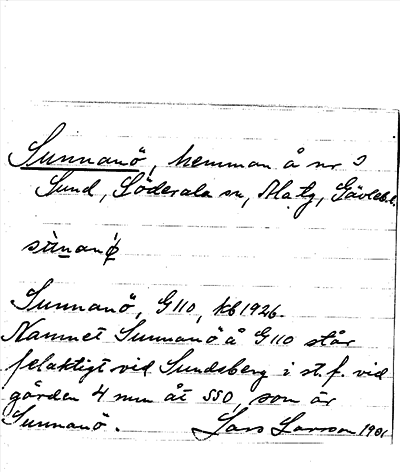 Sunnanö, hemman å nr 2
Sund, Söderala sn, Ala tg, Gävleb.l.
sùnanǿ
Sunnanö, G110, kb 1926.
Namnet Sunnanö å G110 står
felaktigt vid Sundsberg i st.f. vid
gården 4 mm åt SSO, som är
Sunnanö. Lars Larsson 1981